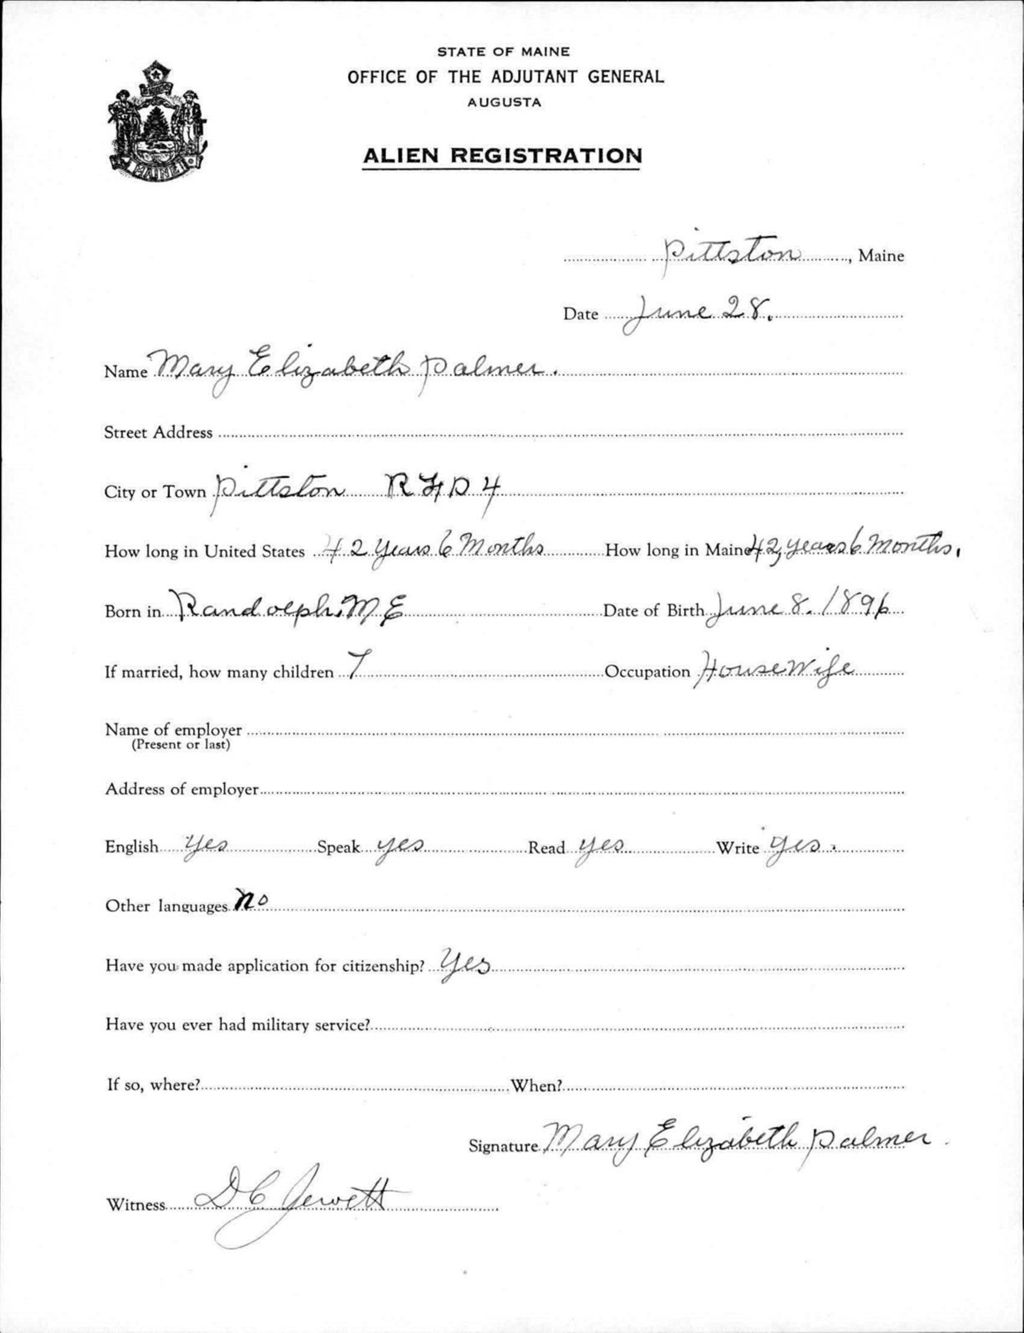 STATE OF MAINE
OFFICE OF THE ADJUTANT GENERAL
AUGUSTA
ALIEN REGISTRATION
MAINE
Pittston, Maine
Date June 28.
Name Mary Elizabeth Palmer.
Street Address
City or Town Pittston RFD 4
How long in United States 42 Years 6 Months How long in Maine 42 years 6 Months.
Born in Randolph, ME Date of Birth June 8. 1896
If married, how many children 7 Occupation HouseWife
Name of employer
(Present or last)
Address of employer
English Yes Speak yes Read yes Write yes.
Other languages no
Have you made application for citizenship? Yes
Have you ever had military service?
If so, where? When?
Signature Mary Elizabeth Palmer.
Witness D C Jewett